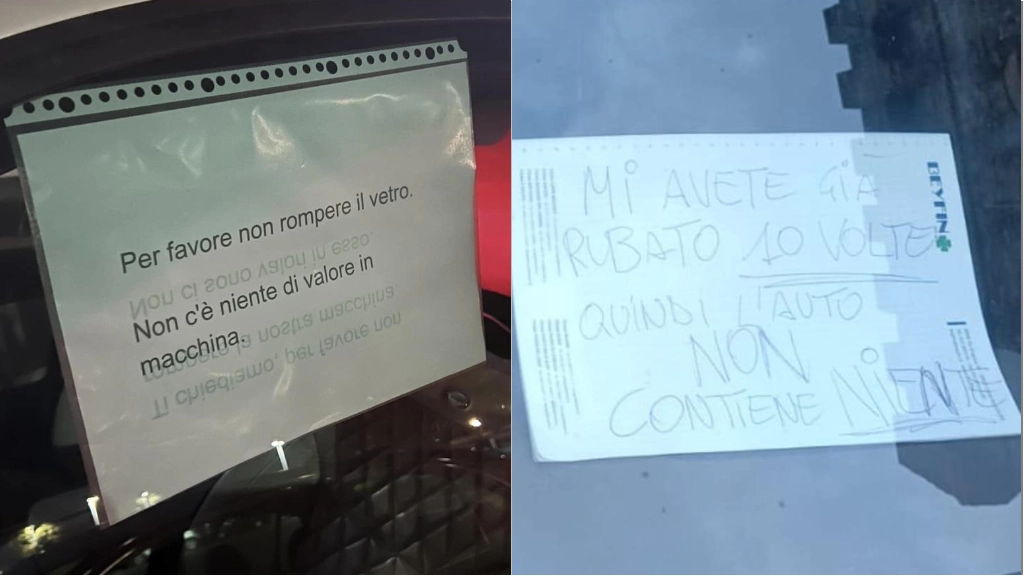 Per favore non rompere il vetro.
Non c'è niente di valore in
macchina.
Ti chiediamo, per favore non
rompere la nostra macchina
Non ci sono valori in esso.
MI AVETE GIÀ
RUBATO 10 VOLTE
QUINDI L'AUTO
NON
CONTIENE NIENTE
BEYFIN